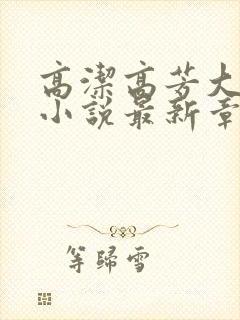 高潔高芳大
小說最新章
等歸雪